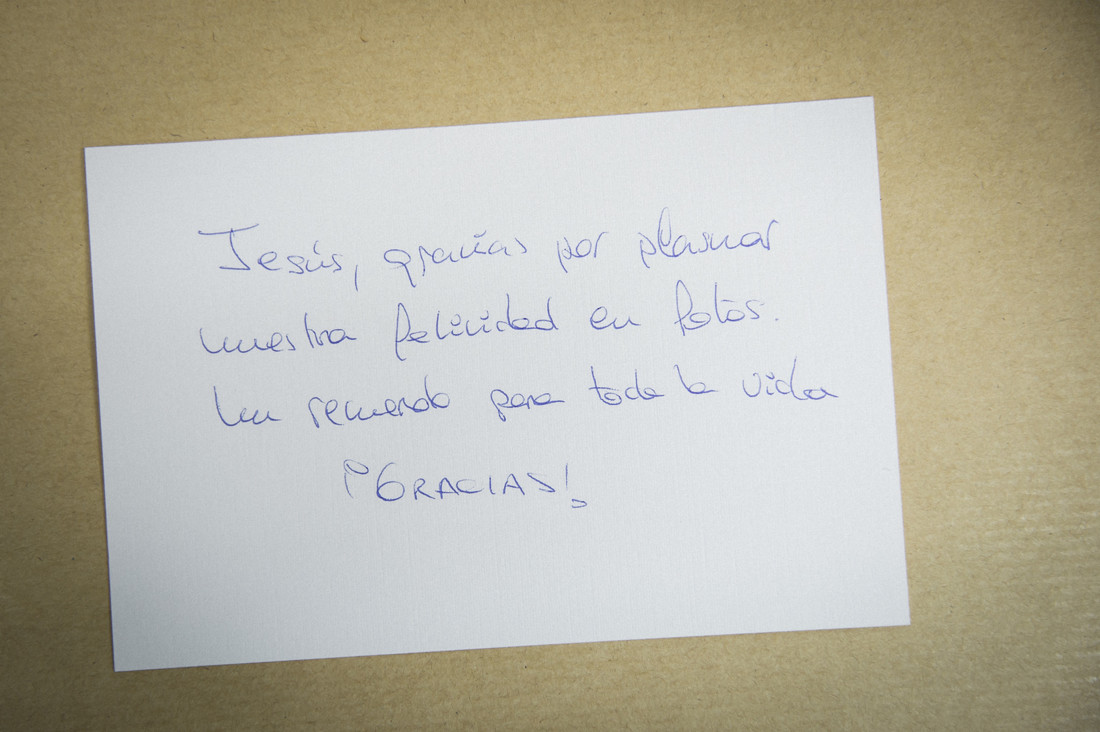 Jesús, gracias por plasmar
nuestra felicidad en fotos.
Un recuerdo para toda la vida
¡GRACIAS!